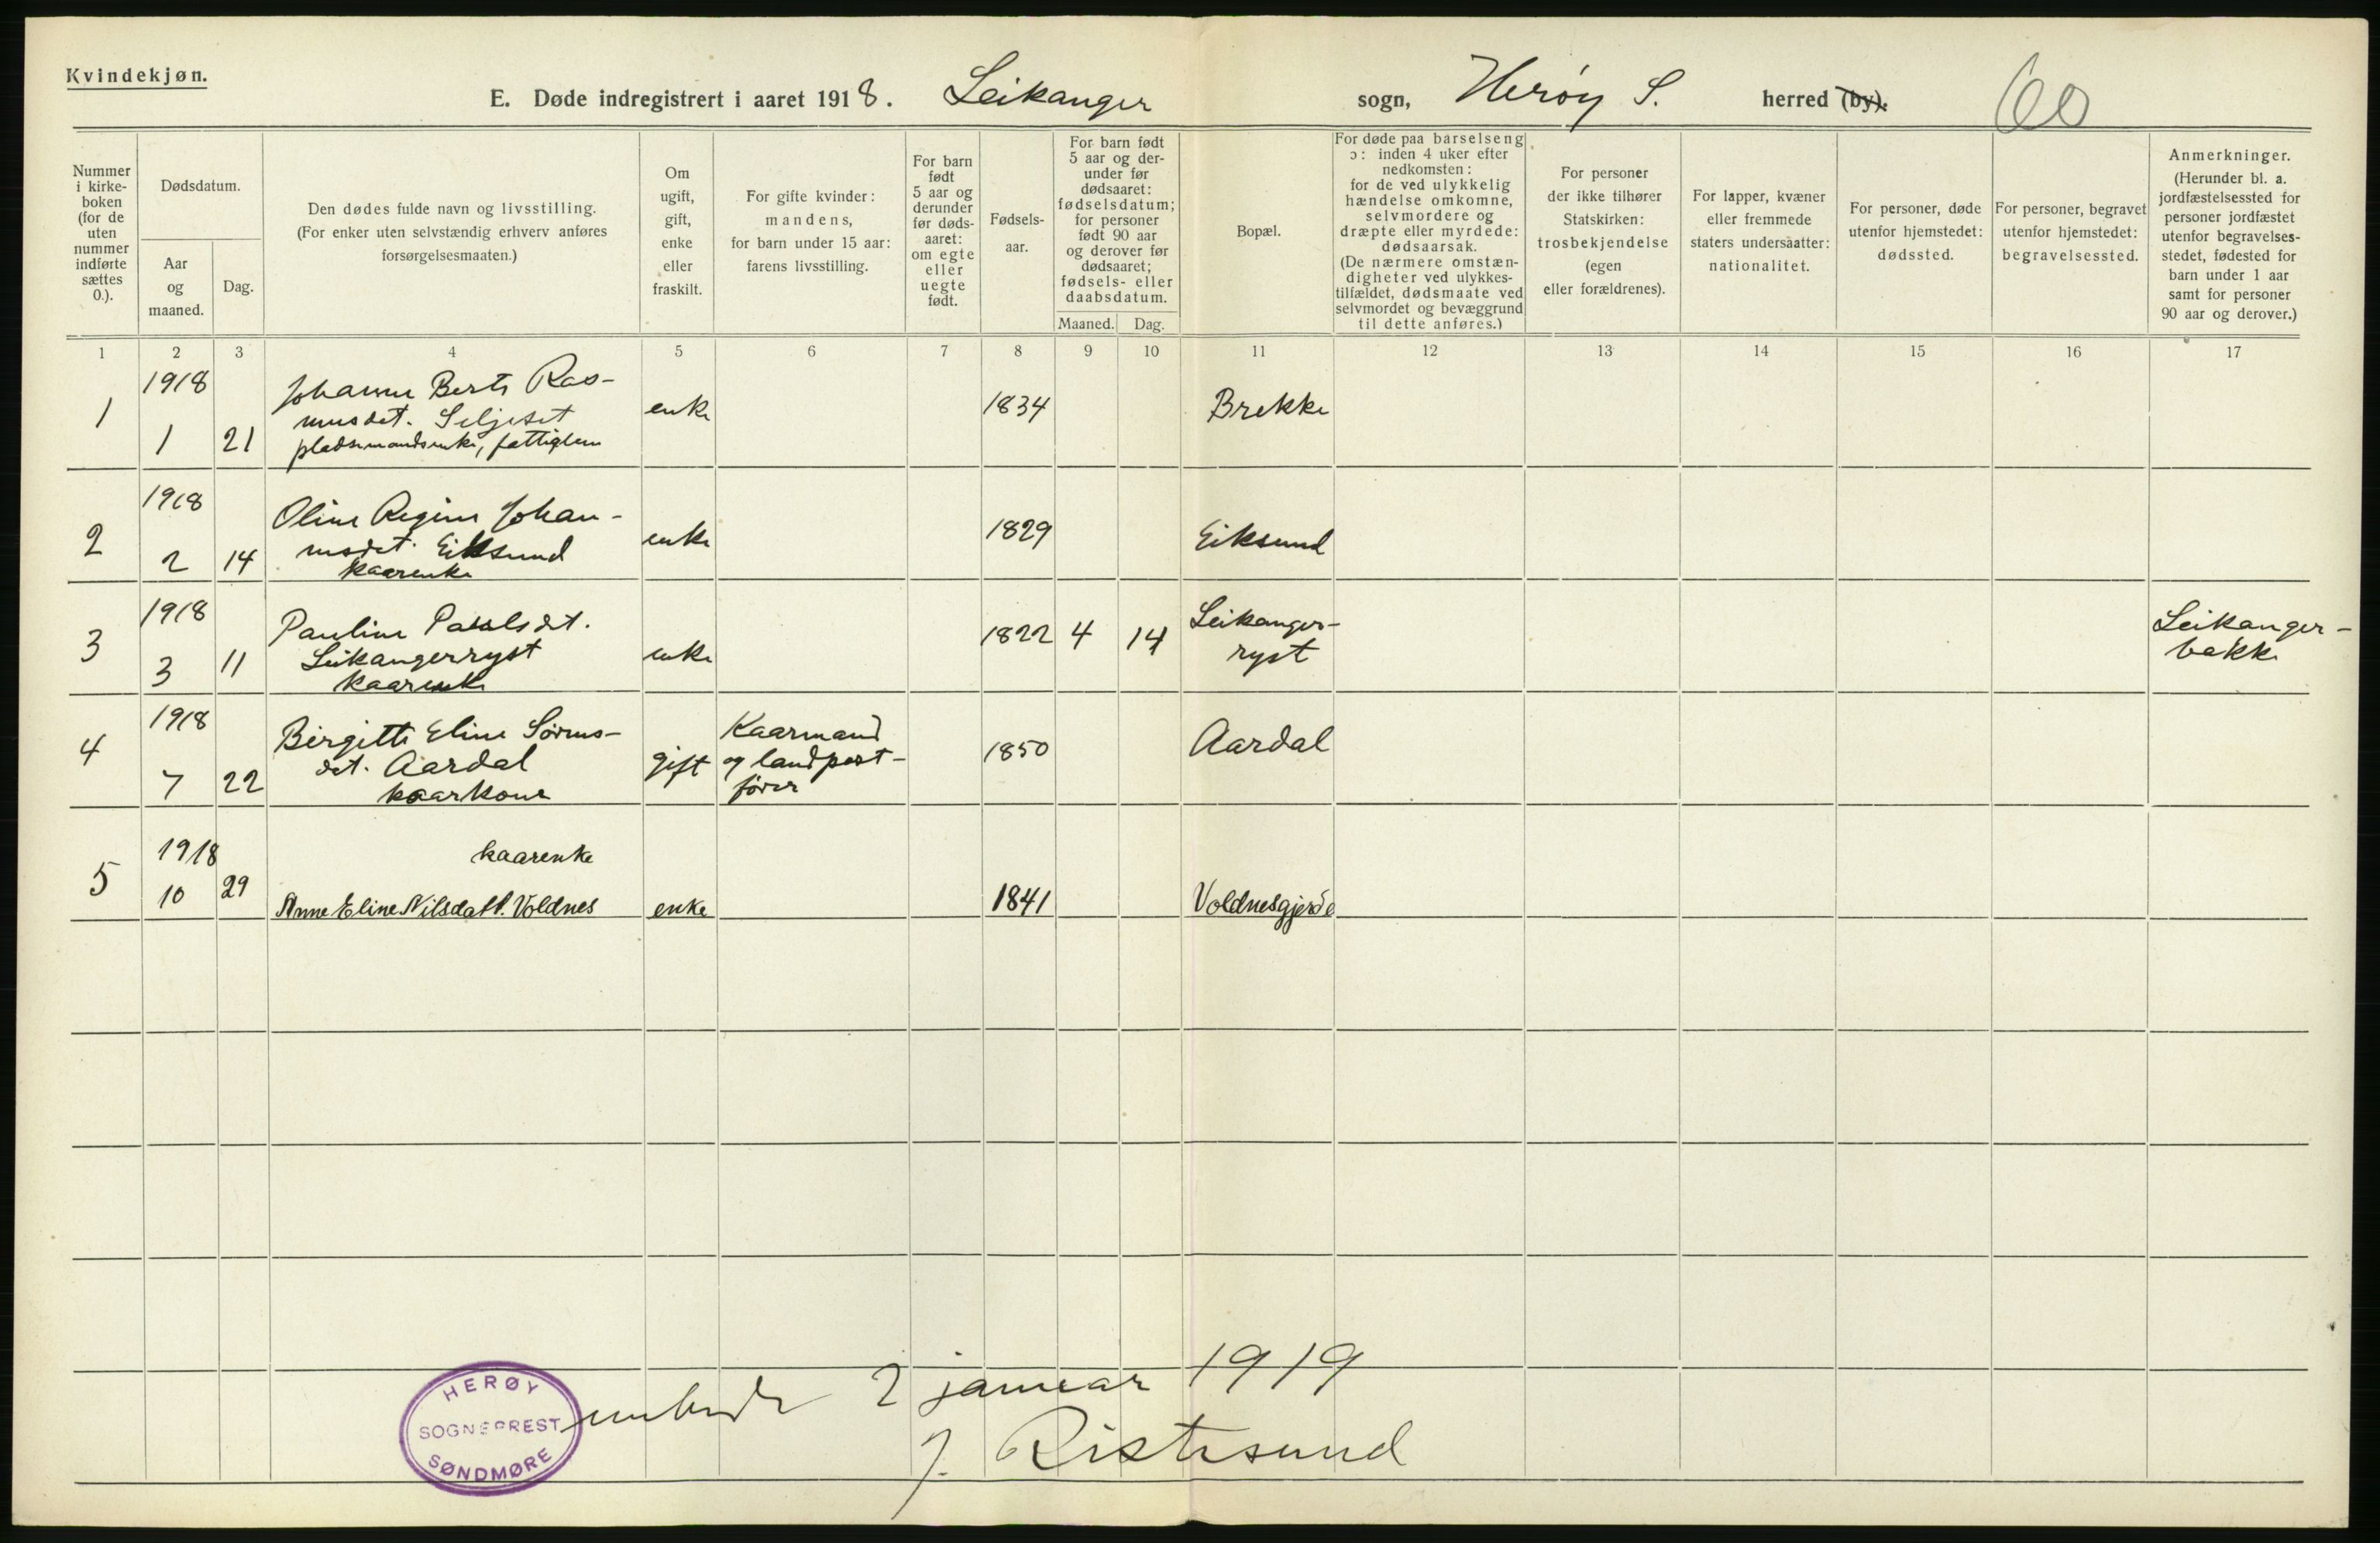 Kvindekjøn.
E. Døde indregistrert i aaret 1918. Leikanger sogn, Herøy S. herred (by).
60
Nummer
i kirke-
boken
(for de
uten
nummer
indførte
sættes
0.).
Dødsdatum.
Aar
og
maaned.
Dag.
Den dødes fulde navn og livsstilling.
(For enker uten selvstændig erhverv anføres
forsørgelsesmaaten.)
Om
ugift,
gift,
enke
eller
fraskilt.
For gifte kvinder:
mandens,
for barn under 15 aar:
farens livsstilling.
For barn
født
5 aar og
derunder
før døds-
aaret:
om egte
eller
uegte
født.
Fødsels-
aar.
For barn født
5 aar og der-
under før
dødsaaret:
fødselsdatum;
for personer
født 90 aar
og derover før
dødsaaret;
fødsels- eller
daabsdatum.
Maaned. Dag.
Bopæl.
For døde paa barselseng
ɔ: inden 4 uker efter
nedkomsten:
for de ved ulykkelig
hændelse omkomne,
selvmordere og
dræpte eller myrdede:
dødsaarsak.
(De nærmere omstæn-
digheter ved ulykkes-
tilfældet, dødsmaate ved
selvmordet og bevæggrund
til dette anføres.)
For personer
der ikke tilhører
Statskirken:
trosbekjendelse
(egen
eller forældrenes).
For lapper, kvæner
eller fremmede
staters undersaatter:
nationalitet.
For personer, døde
utenfor hjemstedet:
dødssted.
For personer, begravet
utenfor hjemstedet:
begravelsessted.
Anmerkninger.
(Herunder bl. a.
jordfæstelsessted for
personer jordfæstet
utenfor begravelses-
stedet, fødested for
barn under 1 aar
samt for personer
90 aar og derover.)
1 2 3 4 5 6 7 8 9 10 11 12 13 14 15 16 17
1 1918
1 21
Johanne Berte Ras-
musdet. Seljeset
pladsmandsenke, fattiglem
enke 1834 Brekke
2 1918
2 14
Oline Regine Johan-
nesdet. Eiksund
kaarenke
enke 1829 Eiksund
3 1918
3 11
Pauline Paulsdet.
Leikangerryst
kaarenke
enke 1822 4 14
Leikanger-
ryst
Leikanger-
bakke
4 1918
7 22
Birgitte Eline Sørens-
det. Aardal
kaarkone
gift
Kaarmand
og landpost-
fører
1850 Aardal
5 1918
10 29
kaarenke
Anne Eline Nilsdatt. Voldnes
enke 1841 Voldnesgjerde
HERØY
SOGNEPREST
SØNDMØRE
embede 2 januar 1919
J. Ristesund